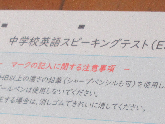 中学校英語スピーキングテスト(E
マークの記入に関する注意事項
B以上の濃さの鉛筆(シャープペンシルも可)を使用し
ールペンは使用しないでください。
正する場合は、消しゴムできれいに消してください。